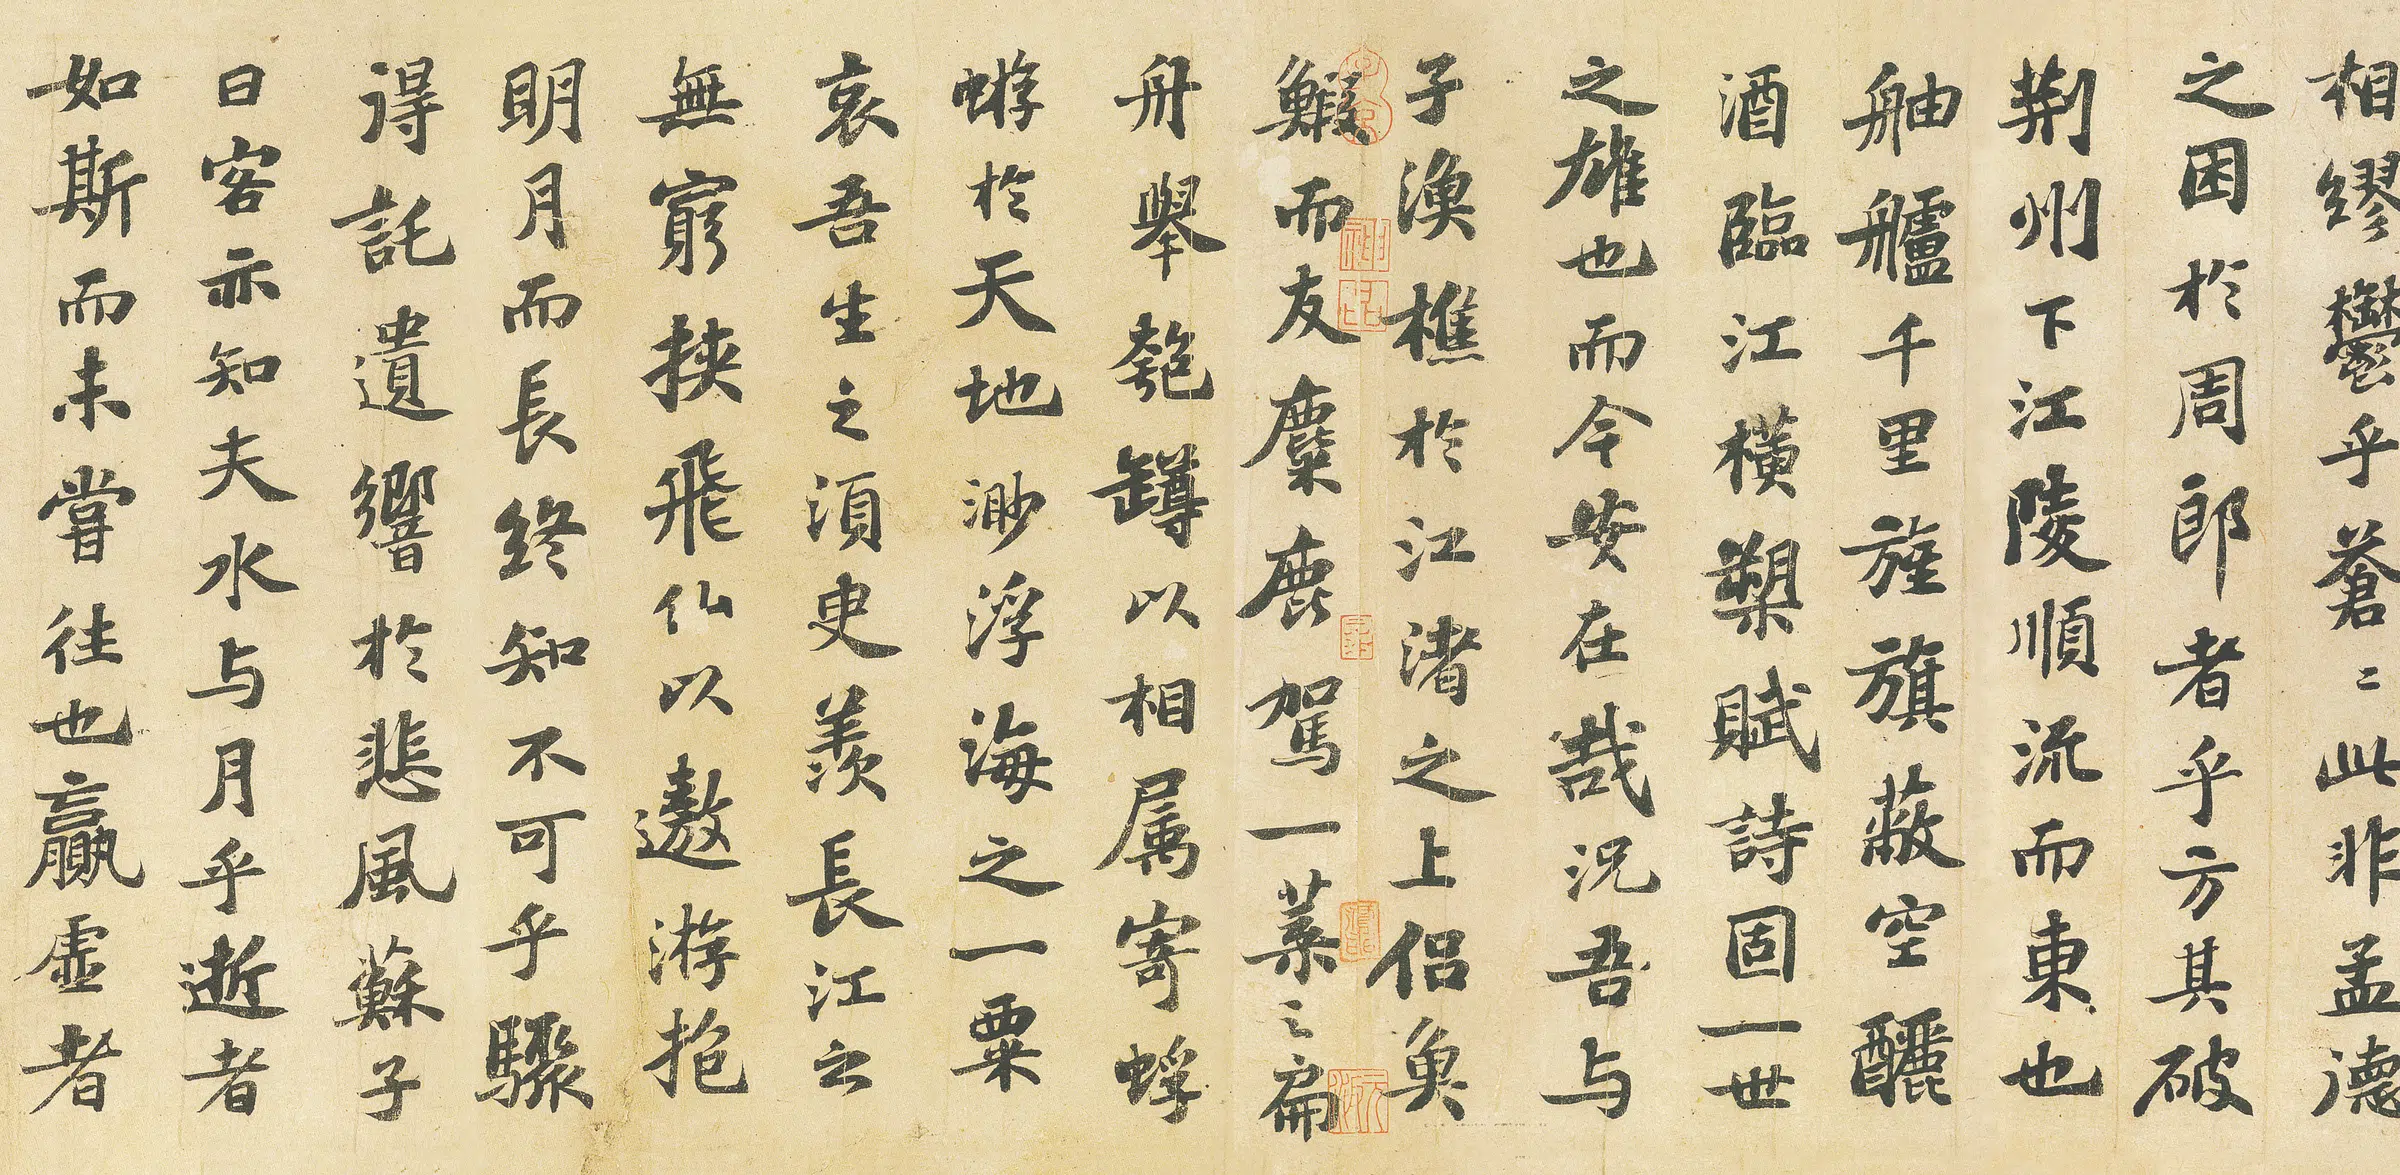 相繆鬱乎蒼〻此非孟德
之困於周郎者乎方其破
荆州下江陵順流而東也
舳艫千里旌旗蔽空釃
酒臨江橫槊賦詩固一世
之雄也而今安在哉況吾与
子漁樵於江渚之上侣魚
鰕而友麋鹿駕一葉之扁
舟舉匏罇以相属寄蜉
蝣於天地渺浮海之一粟
哀吾生之須臾羨長江之
無窮挾飛仙以遨游抱
明月而長終知不可乎驟
得託遺響於悲風蘇子
曰客亦知夫水与月乎逝者
如斯而未嘗往也贏虛者